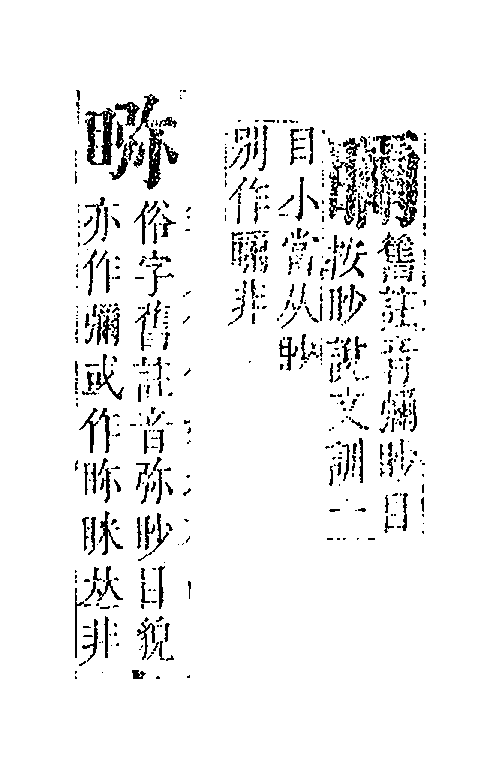 舊註音彌眇目
按眇說文訓一
目小當从眇
別作非
俗字舊註音弥眇目貌
亦作彌或作眯𠀤非